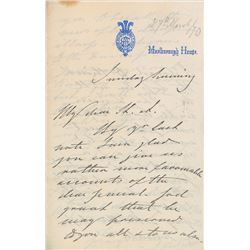 27th March /70
Marlborough House.
Sunday Evening
My dear
By yr last
note I am glad
you can give us
rather more favourable
accounts of the
dear General. God
grant that he
may preserved
to you all &